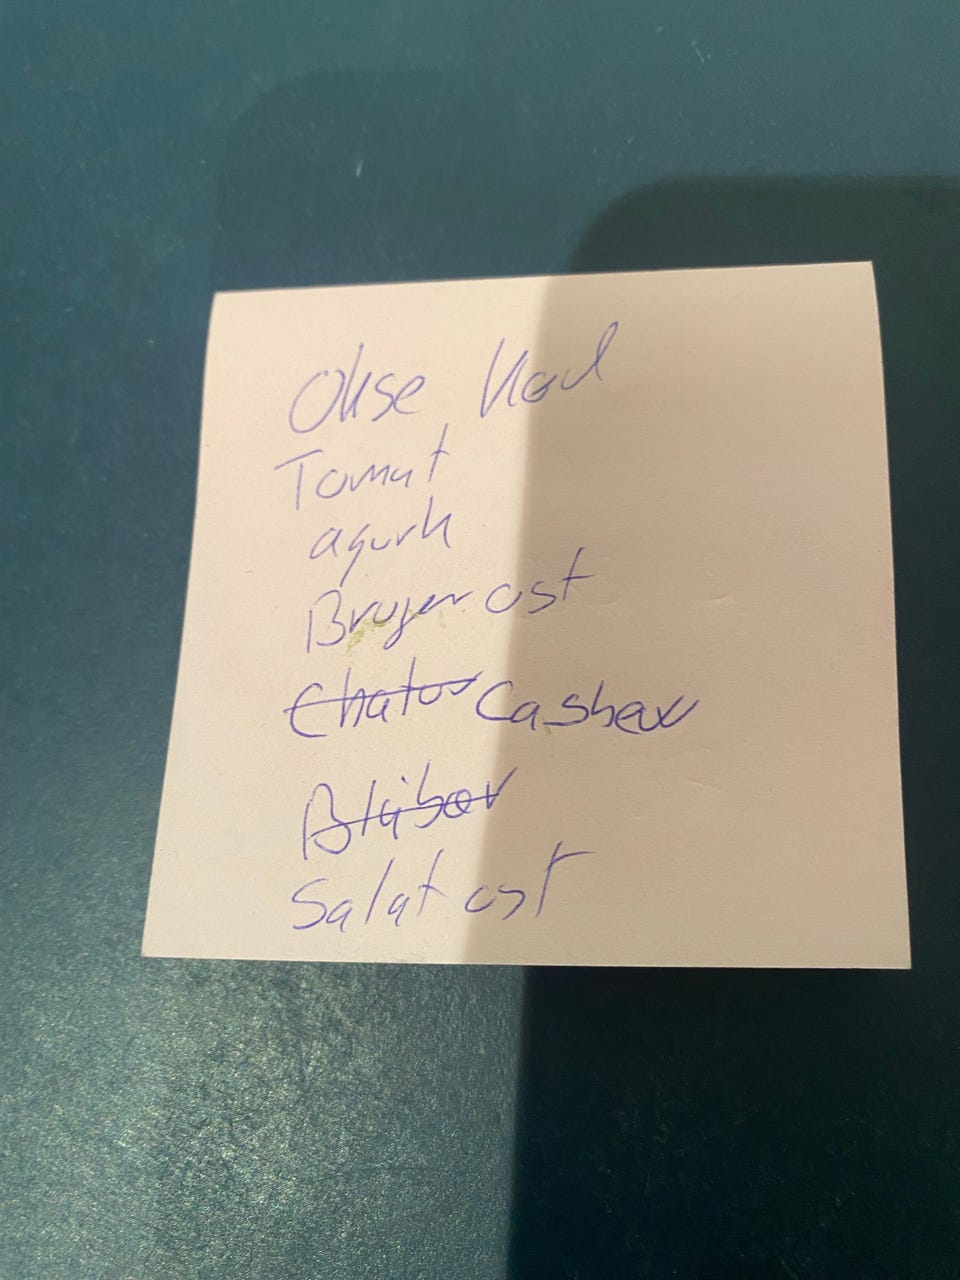 Okse Kød
Tomat
agurk
Bruger ost
Chatos Cashew
Blåbær
Salat ost